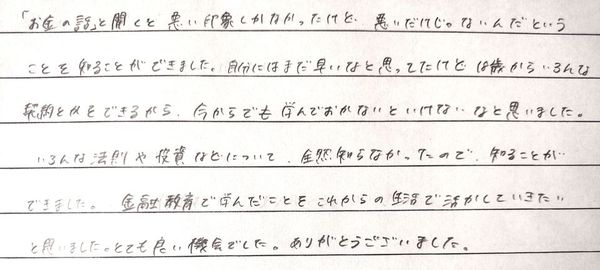 「お金の話」と聞くと悪い印象しかなかったけど、悪いだけじゃないんだという
ことを知ることができました。自分にはまだ早いなと思ってたけど18歳からいろんな
契約とかもできるから、今からでも学んでおかないといけないなと思いました。
いろんな法則や投資などについて、全然知らなかったので、知ることが
できました。金融教育で学んだことをこれからの生活で活かしていきたい
と思いました。とても良い機会でした。ありがとうございました。